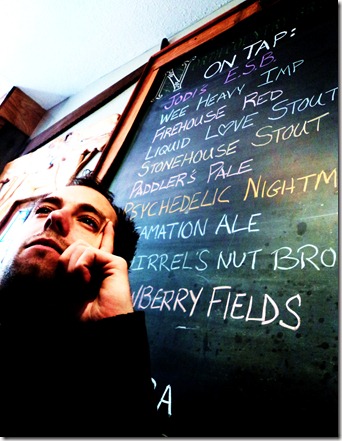 N ON TAP:
JODI'S E.S.B.
WEE HEAVY IMP
FIREHOUSE RED
LIQUID LOVE STOUT
STONEHOUSE STOUT
PADDLER'S PALE
PSYCHEDELIC NIGHTM
EAMATION ALE
IRREL'S NUT BRO
WBERRY FIELDS